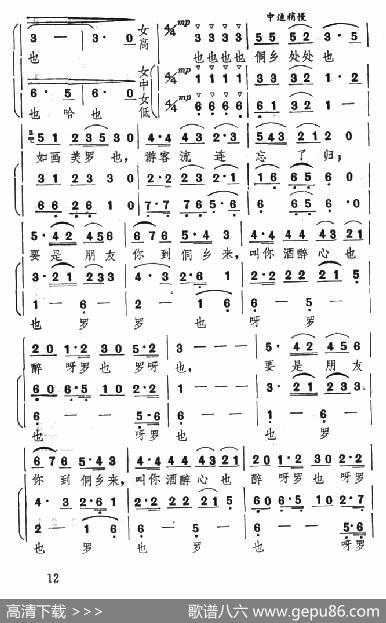 中速稍慢
女高 4/4 mp
3 — 3· 0 3 3 3 3 55 52 3·5
也 也也也也 侗乡处处也
女中
女低 4/4 mp
6·5 — 6 6 6 6
也哈也
51 2353 0 4·4 43 2·3 5053 212 0
如画美罗也, 游客流连忘了归;
31 2132 0 2·2 23 5·1 16 656 0
66 2616 0 7·7 765·5 66 6·6 0
5·42 456 676 5·43 4·4 44 4321
要是朋友你到侗乡来, 叫你酒醉心也
3·21 233 4·3 2·61 2·2 22 215
1 — 6 — 2 — 16 6 — 5 —
也罗也罗也呀罗
20 1·2 30 50 3 — — — 5·42 456
醉呀罗也罗呀也, 要是朋友
60 6·5 10 2·2 1 — — — 3·21 233
6 — — 5·6 6 — — — 1 — 6 —
也呀罗也也罗
676 5·43 4·4 44 4321 20 1·2 30 5·5
你到侗乡来, 叫你酒醉心也醉呀罗也呀罗
4·3 2·61 2·2 22 215 60 6·5 10 2·7
2 — 16 6 — 5 — 6 — — 5·5
也罗也罗也呀罗
12
高清下载 >>>
歌谱八六 www.gepu86.com